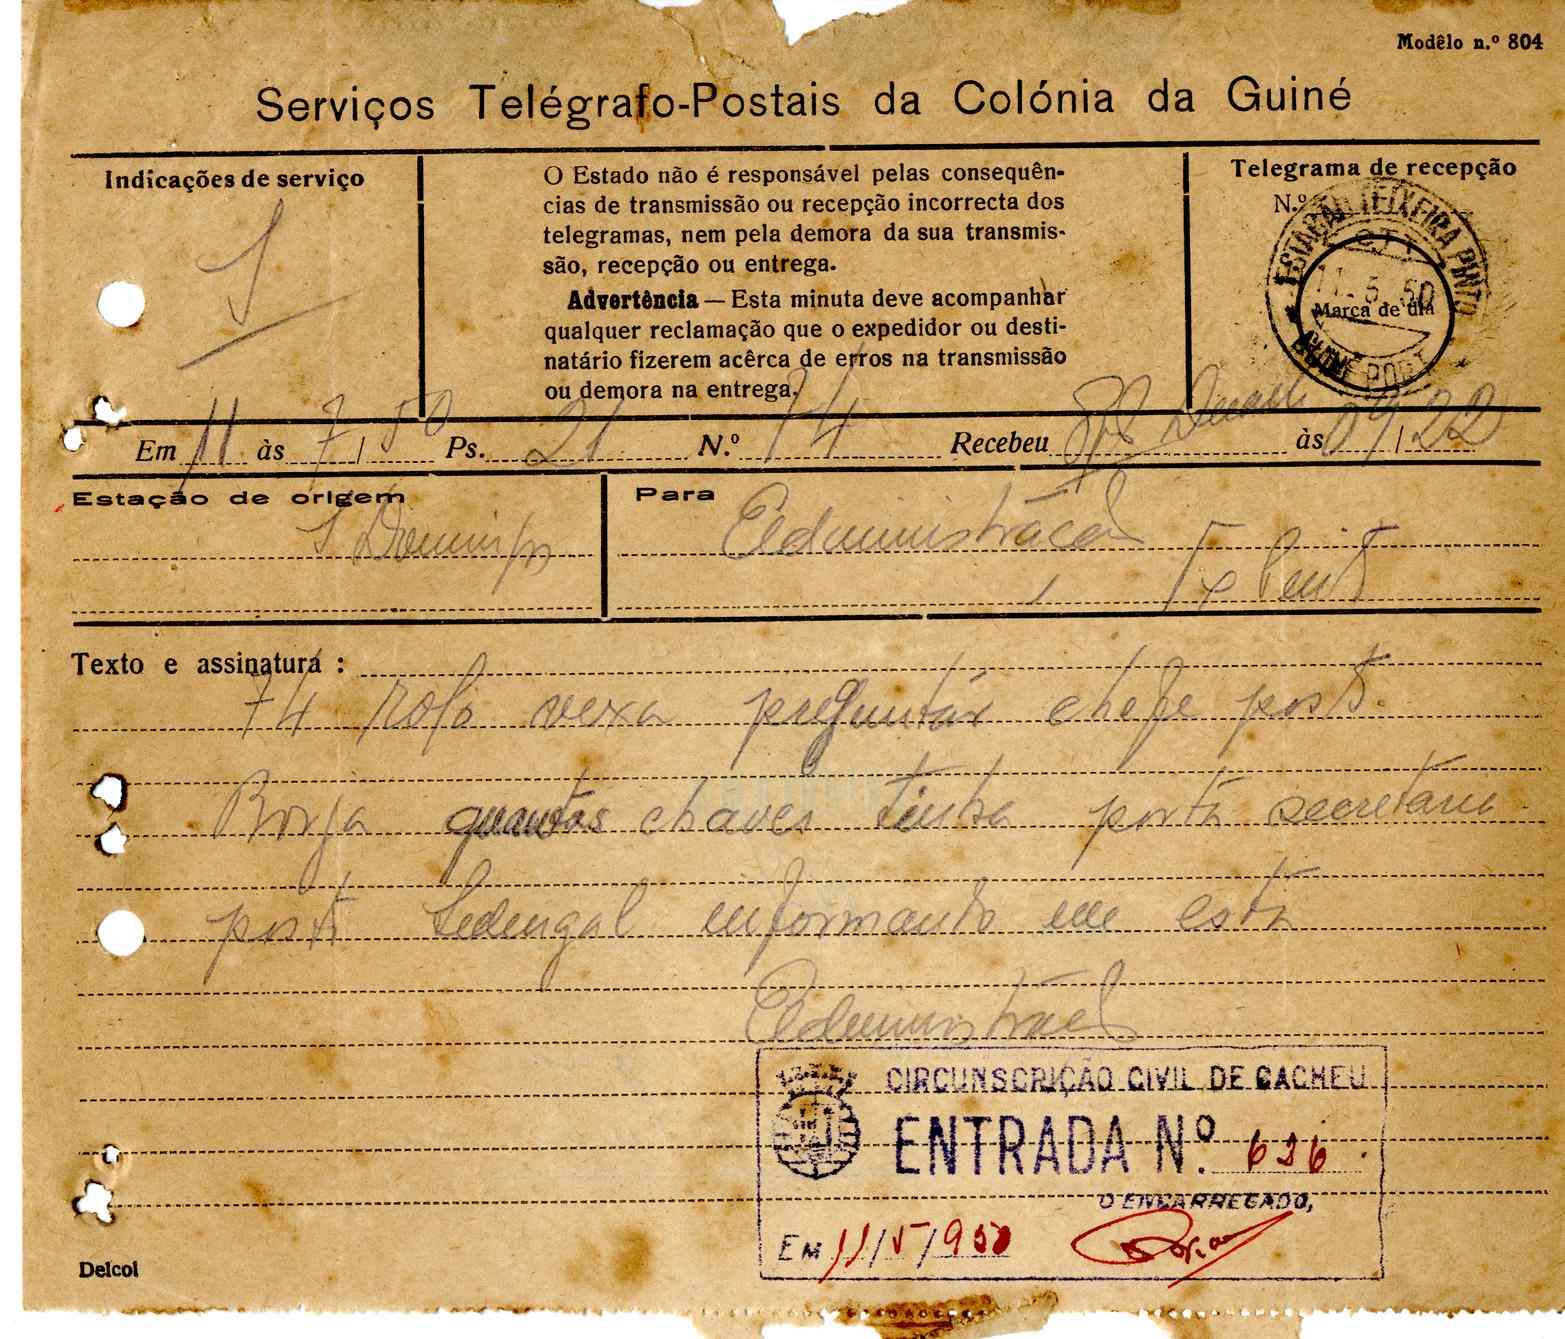 Modêlo n.º 804
Serviços Telégrafo-Postais da Colónia da Guiné
Indicações de serviço
S
O Estado não é responsável pelas consequên-
cias de transmissão ou recepção incorrecta dos
telegramas, nem pela demora da sua transmis-
são, recepção ou entrega.
Advertência — Esta minuta deve acompanhar
qualquer reclamação que o expedidor ou desti-
natário fizerem acêrca de erros na transmissão
ou demora na entrega.
Telegrama de recepção
N.º
ESTAÇÃO TEIXEIRA PINTO
C T T
11.5.50
Marca de dia
GUINÉ PORT.
Em 11 às 7/50 Ps. 21 N.º 74 Recebeu às 09/22
Estação de origem
S Domingos
Para
Administração
Tx Pinto
Texto e assinatura :
74 rogo vexa preguntar chefe posto
Borja quantas chaves tinha porta secretaria
posto Sedengal informando me esta
Administração
CIRCUNSCRIÇÃO CIVIL DE CACHEU
ENTRADA N.º 636
O ENCARREGADO,
EM 11/5/950
Delcol